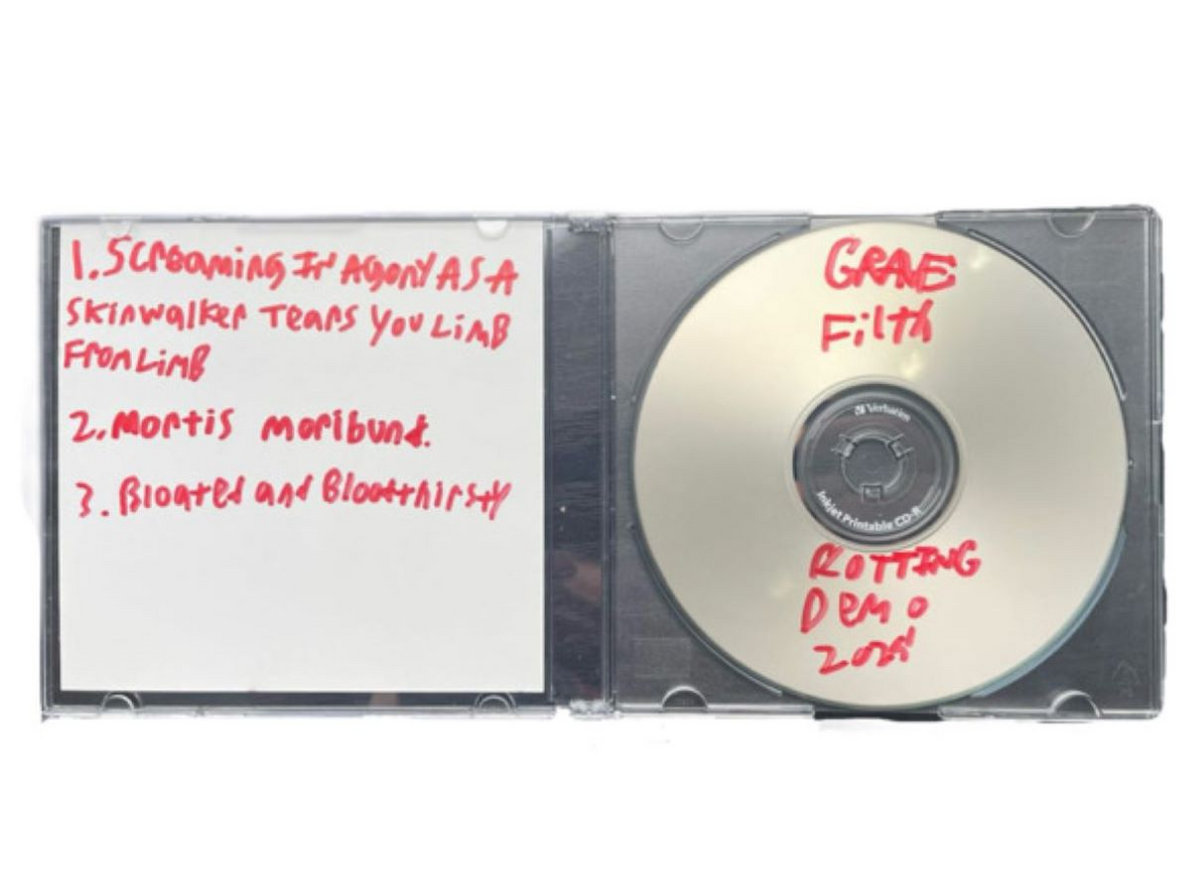 1. Screaming In Agony AS A
Skinwalker Tears You Limb
From Limb
2. Mortis moribund.
3. Bloated and Bloodthirsty
GRAVE
Filth
Verbatim
Inkjet Printable CD-R
ROTTING
Demo